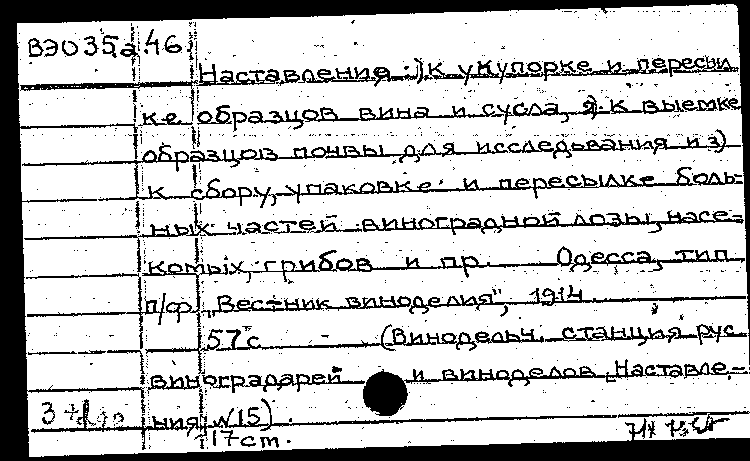 ВЭО35а 46
Наставление :1)к укупорке и пересыл
ке образцов вина и сусла, 2) к выемке
образцов почвы для исследывания и 3)
к сбору, упаковке и пересылке боль-
ных частей виноградной лозы, насе-
комых, грибов и пр. Одесса, тип
п/ф „Вестник виноделия", 1914
57с (Винодельч. станция рус
виноградарей и виноделов „Наставле-
ния N15).
17cm.